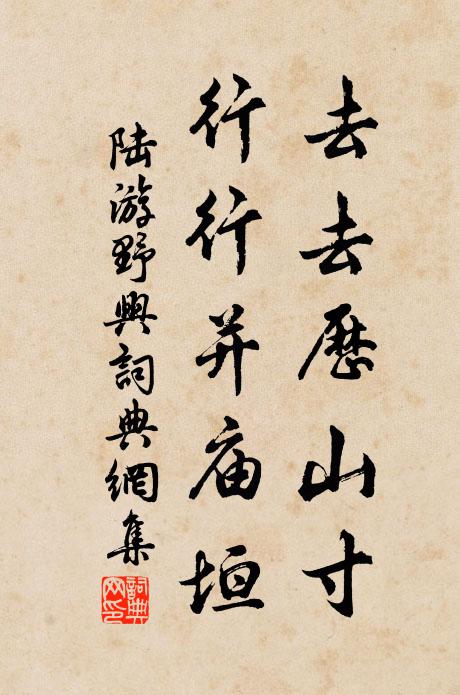 去去歷山寸
行行并庙垣
陆游野興詞典網集
詞典网印